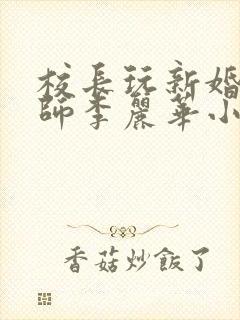 校長玩新婚
師李麗華小
香菇炒飯了